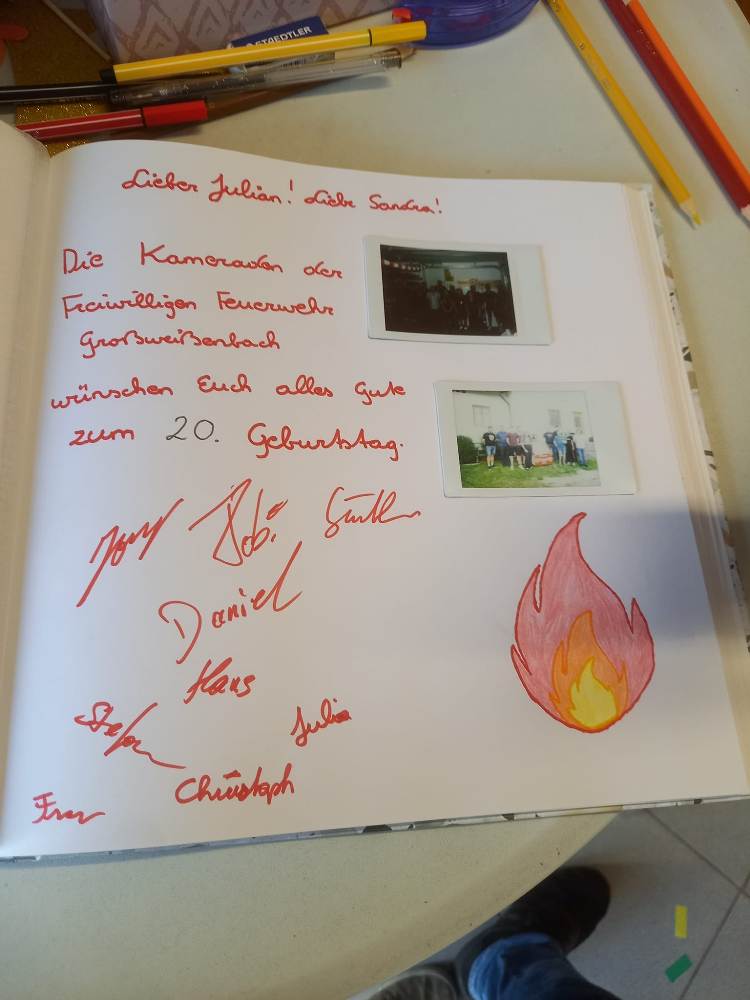 STAEDTLER
Lieber Julian! Liebe Sandra!
Die Kameraden der
Freiwilligen Feuerwehr
Großweißenbach
wünschen Euch alles Gute
zum 20. Geburtstag.
Daniel
Hans
Stefan
Julia
Christoph